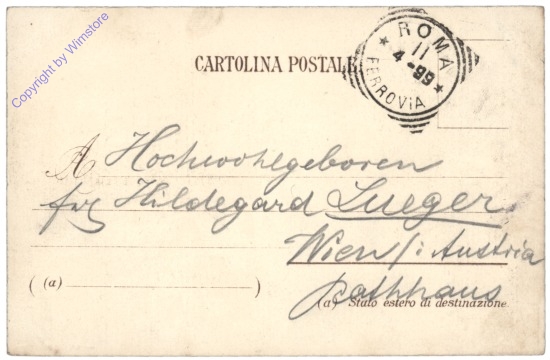 Copyright by Wimstore
CARTOLINA POSTALE
ROMA
11
4-99
FERROVIA
A Hochwohlgeboren
Hildegard Lueger
Wien /: Austria
Rathhaus
(a)
(a) Stato estero di destinazione.